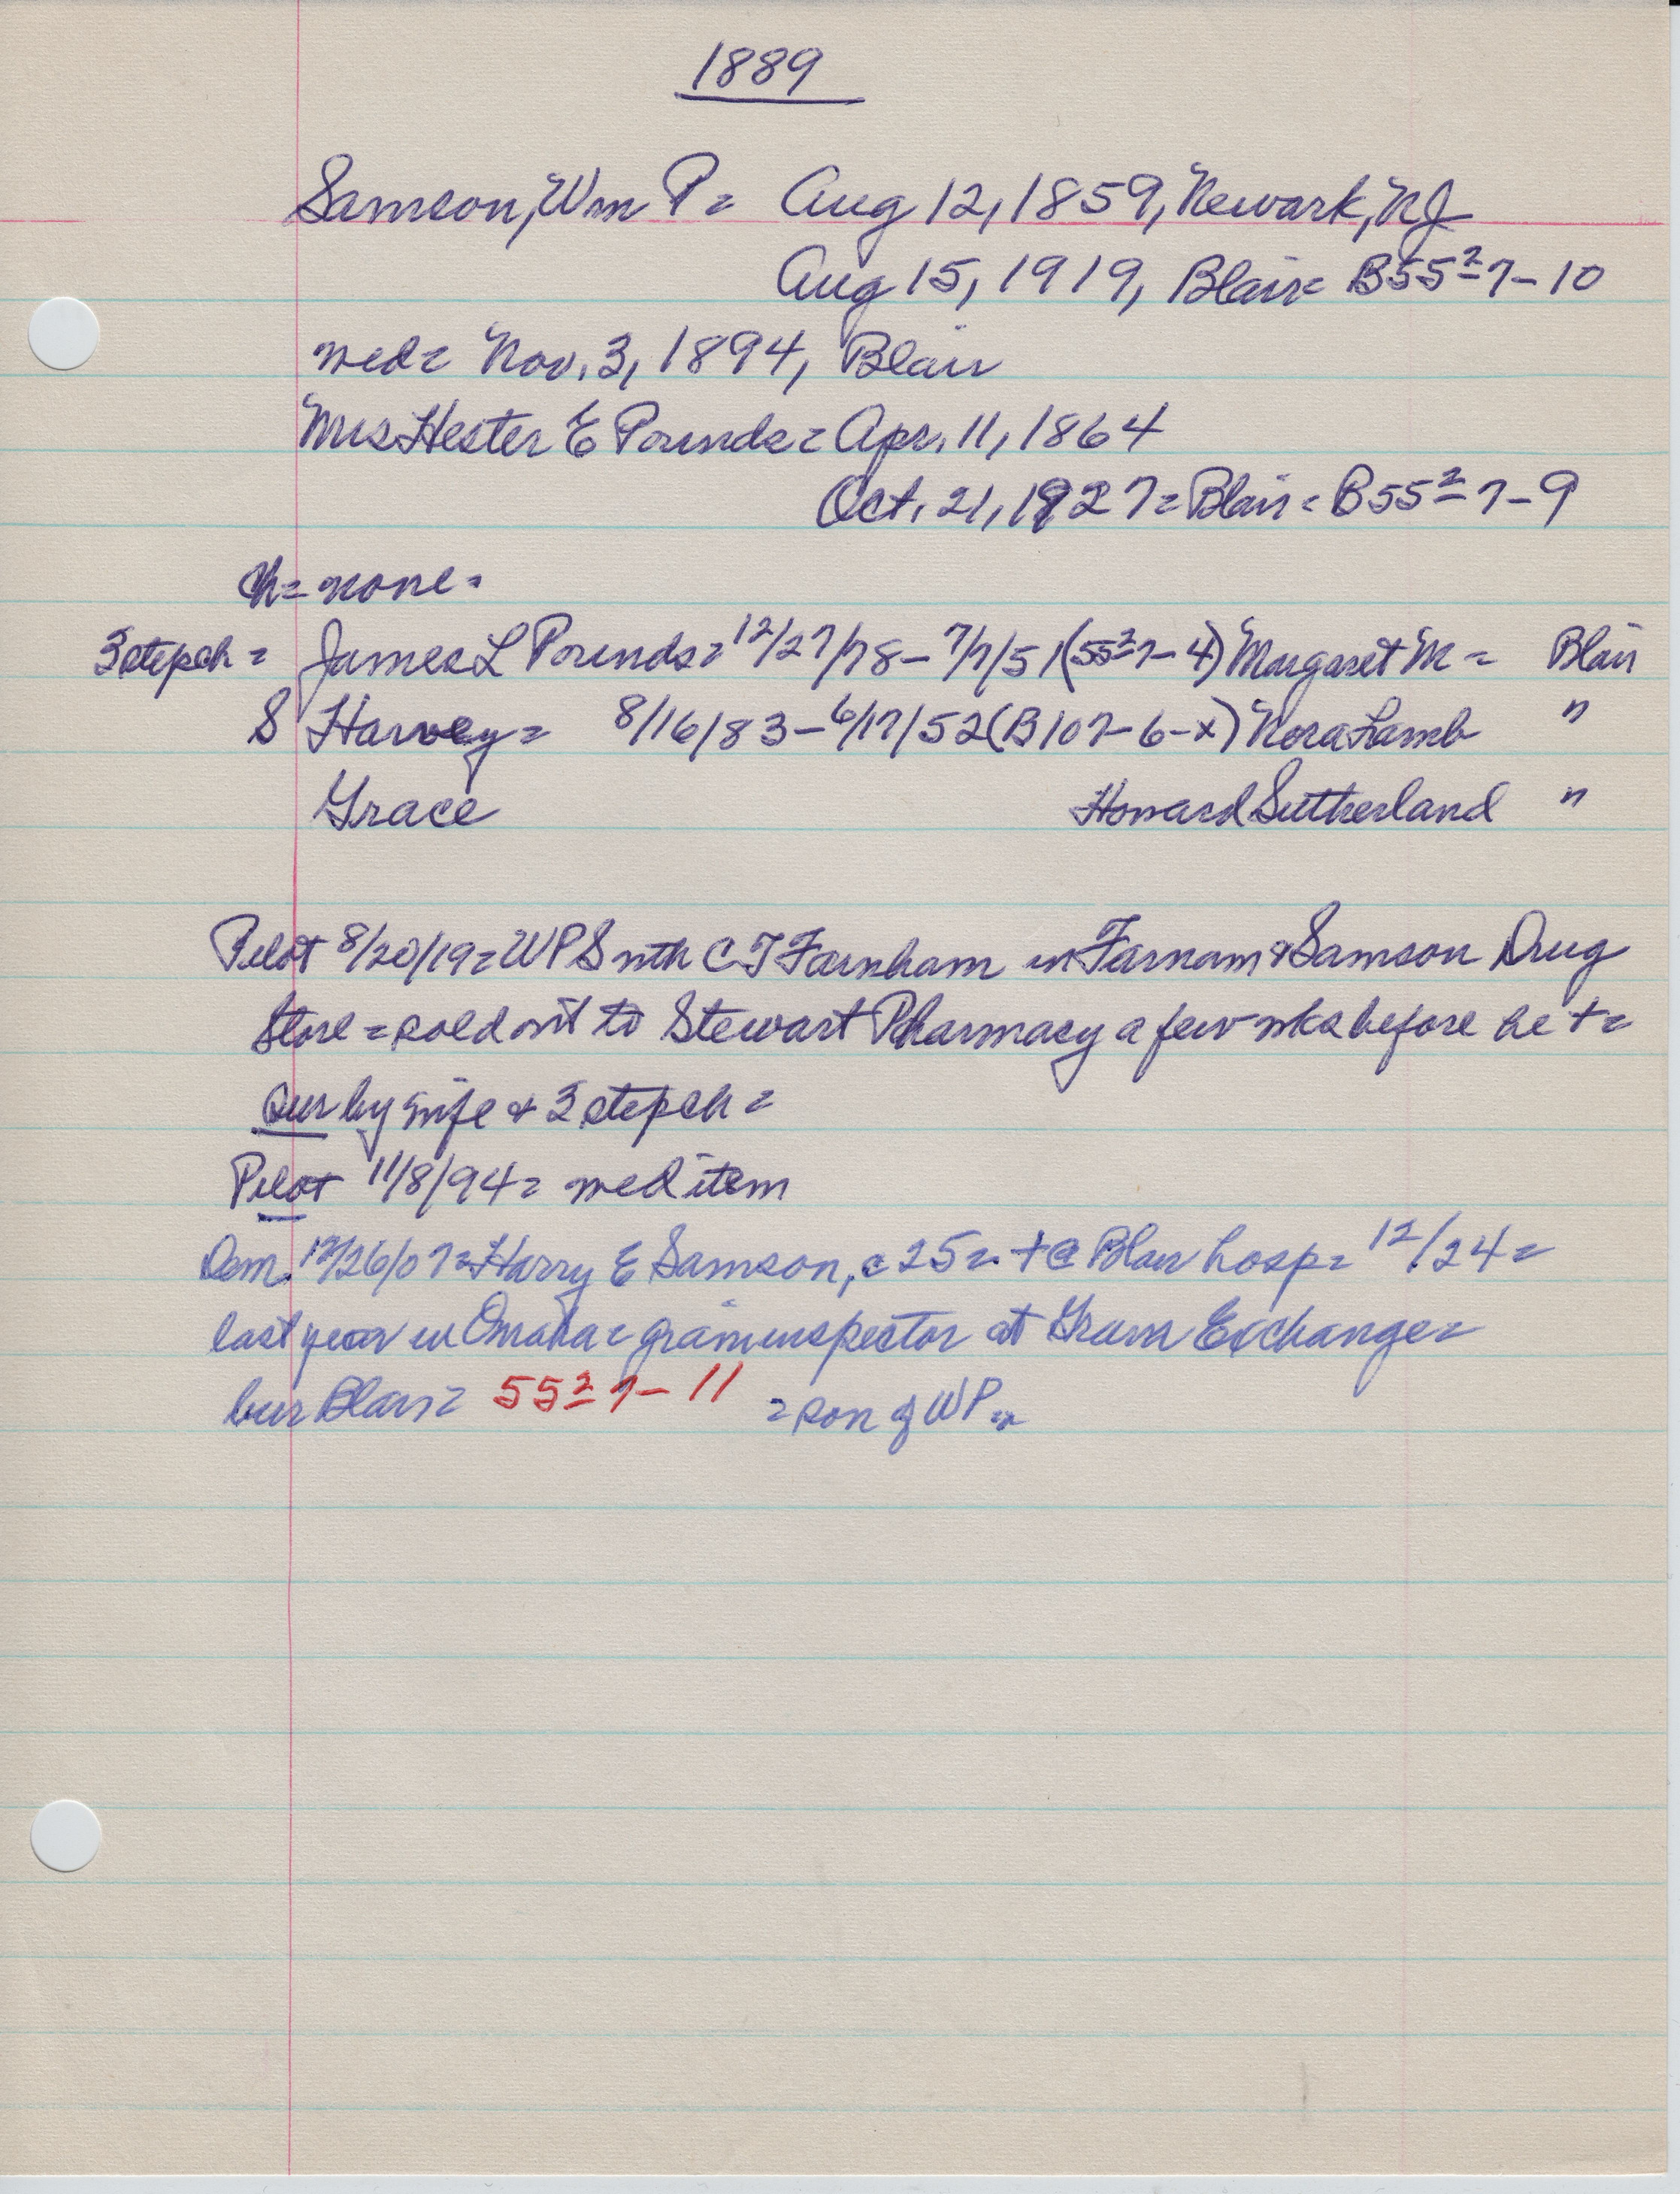 1889
Samson, Wm P = Aug 12, 1859, Newark, NJ
Aug 15, 1919, Blair = B55² 7-10
wed = Nov. 3, 1894, Blair
Mrs Hester E Pounds = Apr. 11, 1864
Oct. 21, 1927 = Blair = B55² 7-9
Ch = none =
3 stepch = James L Pounds = 12/27/78 - 7/7/51 (55² 7-4) Margaret M = Blair
S Harvey = 8/16/83 - 6/17/52 (B107-6-x) Nora Lamb "
Grace Howard Sutherland "
Pilot 8/20/19 = WPS with C T Farnham in Farnam & Samson Drug
Store = sold out to Stewart Pharmacy a few wks before he + =
Sur by wife & 3 stepch =
Pilot 11/8/94 = wed item
Dem. 12/26/07 = Harry E Samson, c 25 = + @ Blair hosp = 12/24 =
last year in Omaha = grain inspector at Grain Exchange =
bur Blair = 55² 7-11 = son of WP =